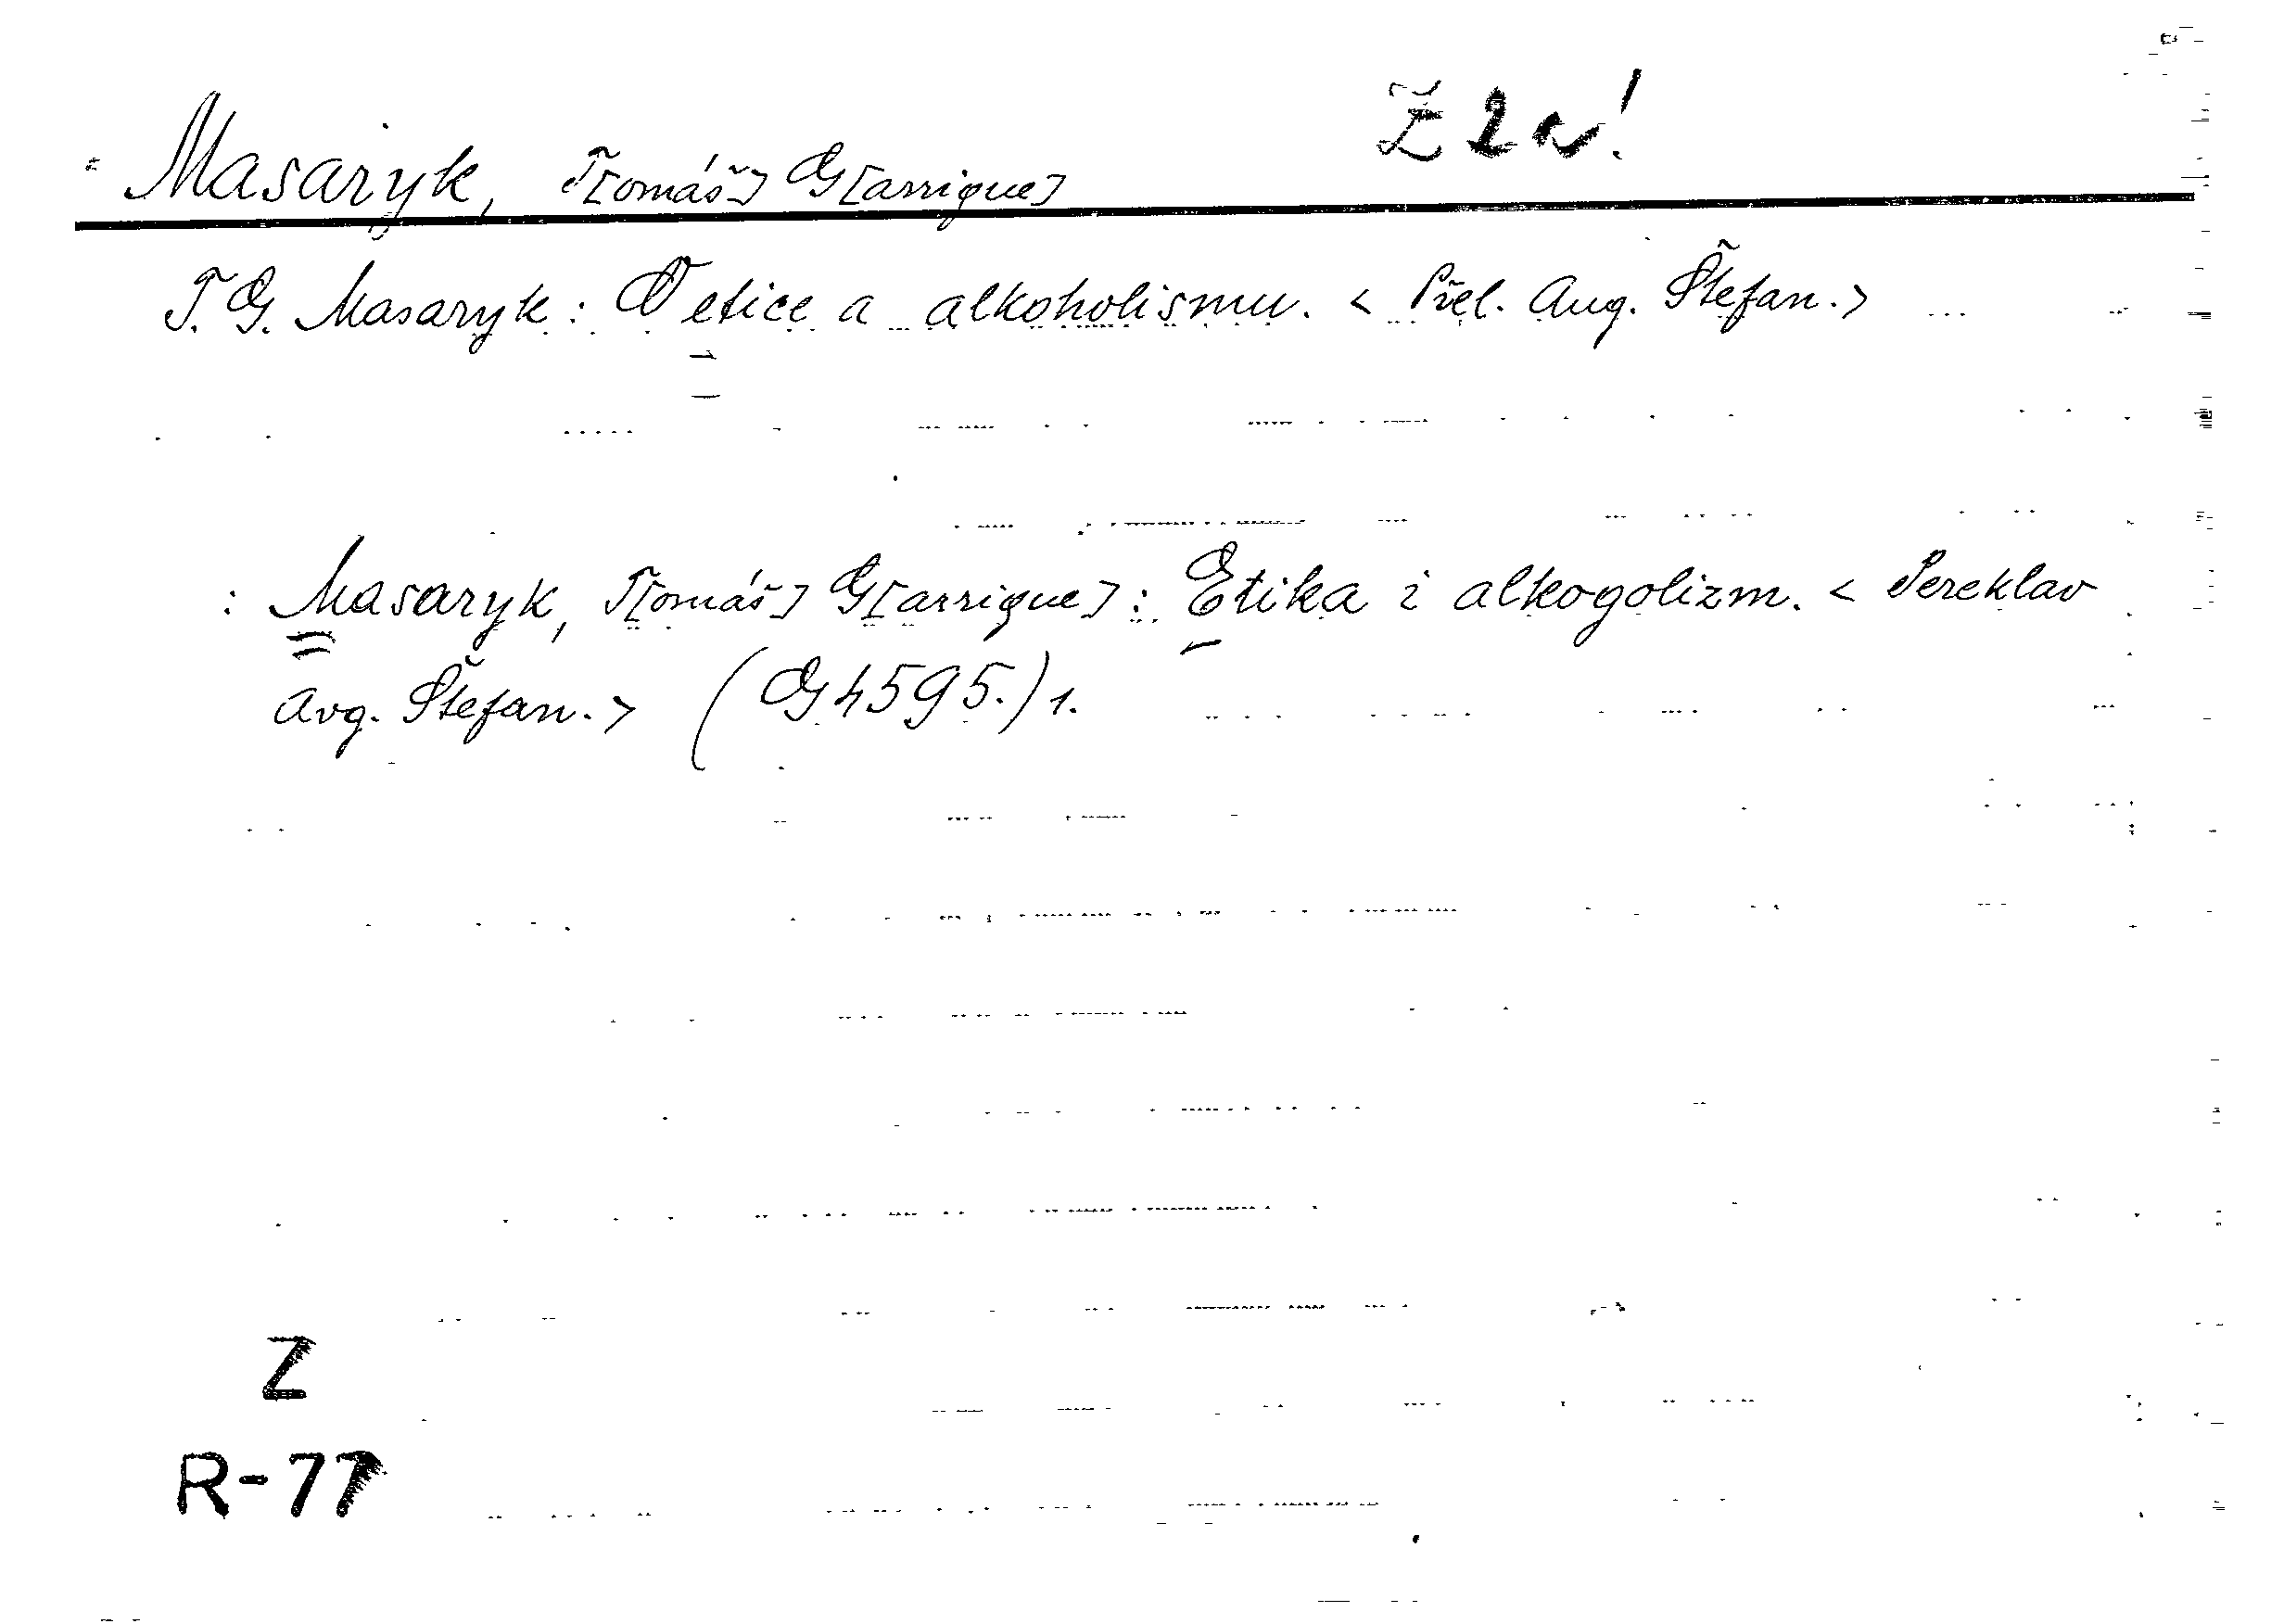 Ž 2a!
Masaryk, T[omáš] G[arrigue]
T. G. Masaryk: O etice a alkoholismu. < Přel. Aug. Štefan. >
: Masaryk, T[omáš] G[arrigue]: Etika i alkogolizm. < Pereklav
Avg. Štefan. > (G 4595.) 1.
Z
R-77